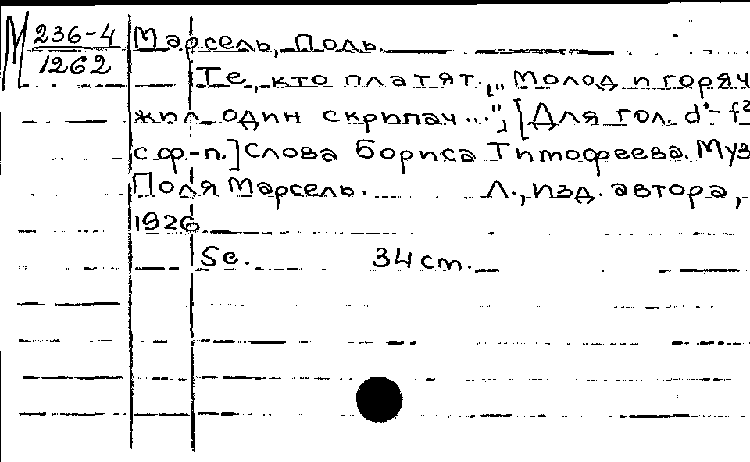 М 236-4
1262
Марсель, Поль.
Те, кто платят. „Молод и горяч
жил один скрипач...", [Для гол. d¹-f²
с ф-п.] Слова Бориса Тимофеева. Муз
Поля Марсель. Л., изд. автора,
1926
5с. 34 cm.